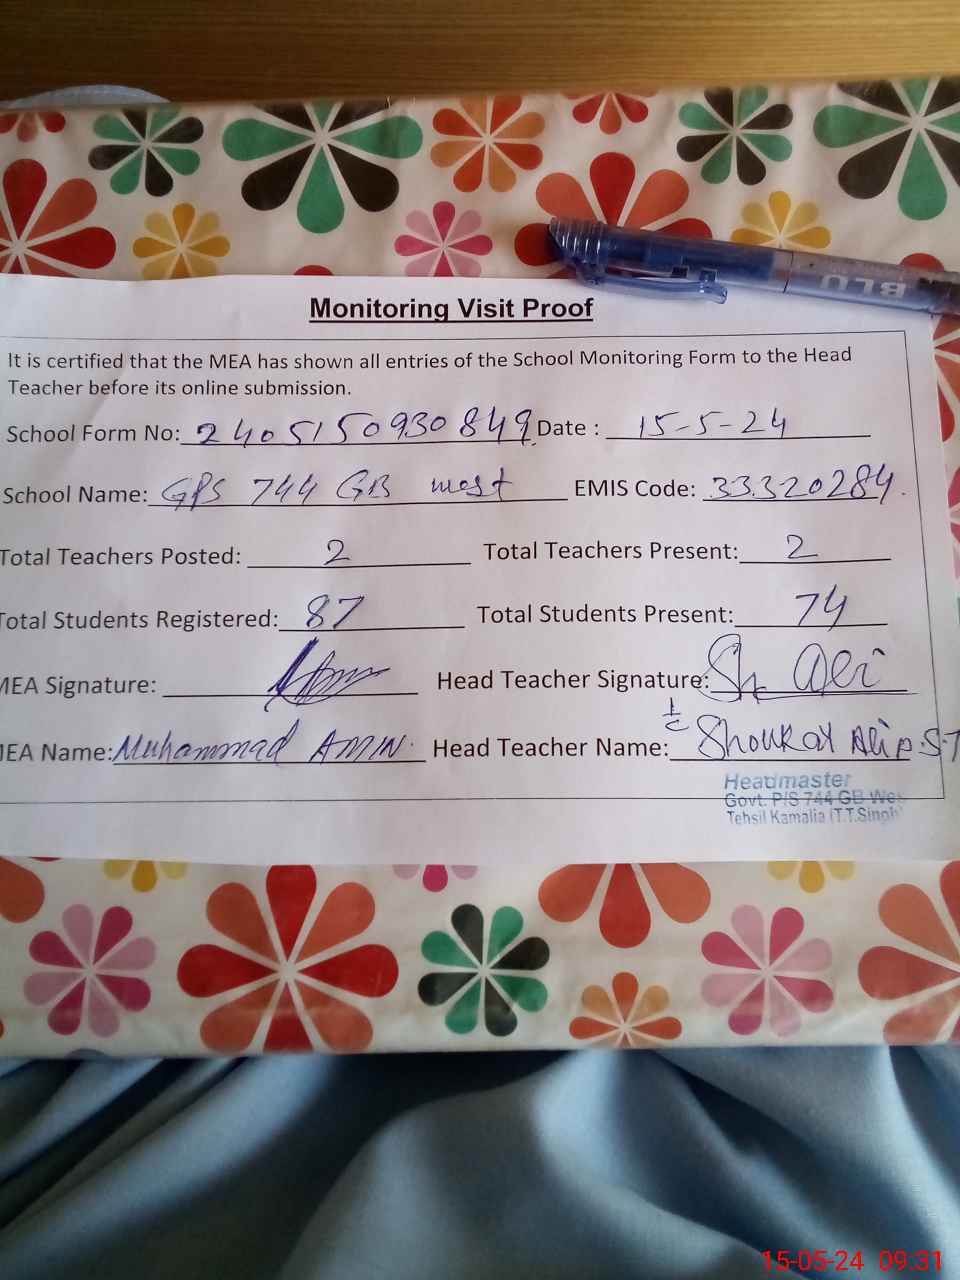 BLU
Monitoring Visit Proof
It is certified that the MEA has shown all entries of the School Monitoring Form to the Head
Teacher before its online submission.
School Form No: 2405150930849 Date : 15-5-24
School Name: GPS 744 GB west EMIS Code: 33320284
Total Teachers Posted: 2 Total Teachers Present: 2
Total Students Registered: 87 Total Students Present: 74
MEA Signature: Head Teacher Signature: Sh Ali
MEA Name: Muhammad AMIN. Head Teacher Name: I/C Shoukat Ali P.S.T
Headmaster
Govt. P/S 744 GB Wes
Tehsil Kamalia (T.T.Singh)
15-05-24 09:31